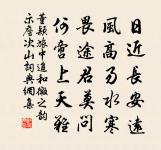 日近長安遠
風高易水寒
畏途君莫問
何啻上天難
董穎旅中追和徽之韵
宋詹次山詞典網集